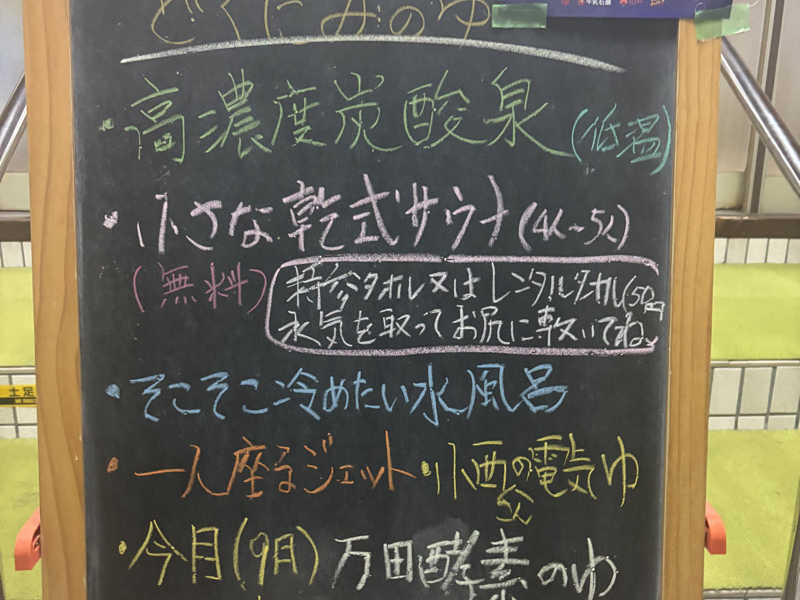 どくだみのゆ
・高濃度炭酸泉(低温)
・小さな乾式サウナ(4人~5人)
(無料)
持参タオル又はレンタルタオル(50円
水気を取ってお尻に敷いてね
・そこそこ冷めたい水風呂
・一人座るジェット・小西の電気ゆ
・今月(9日)万田酵素のゆ
土足
牛乳石鹸